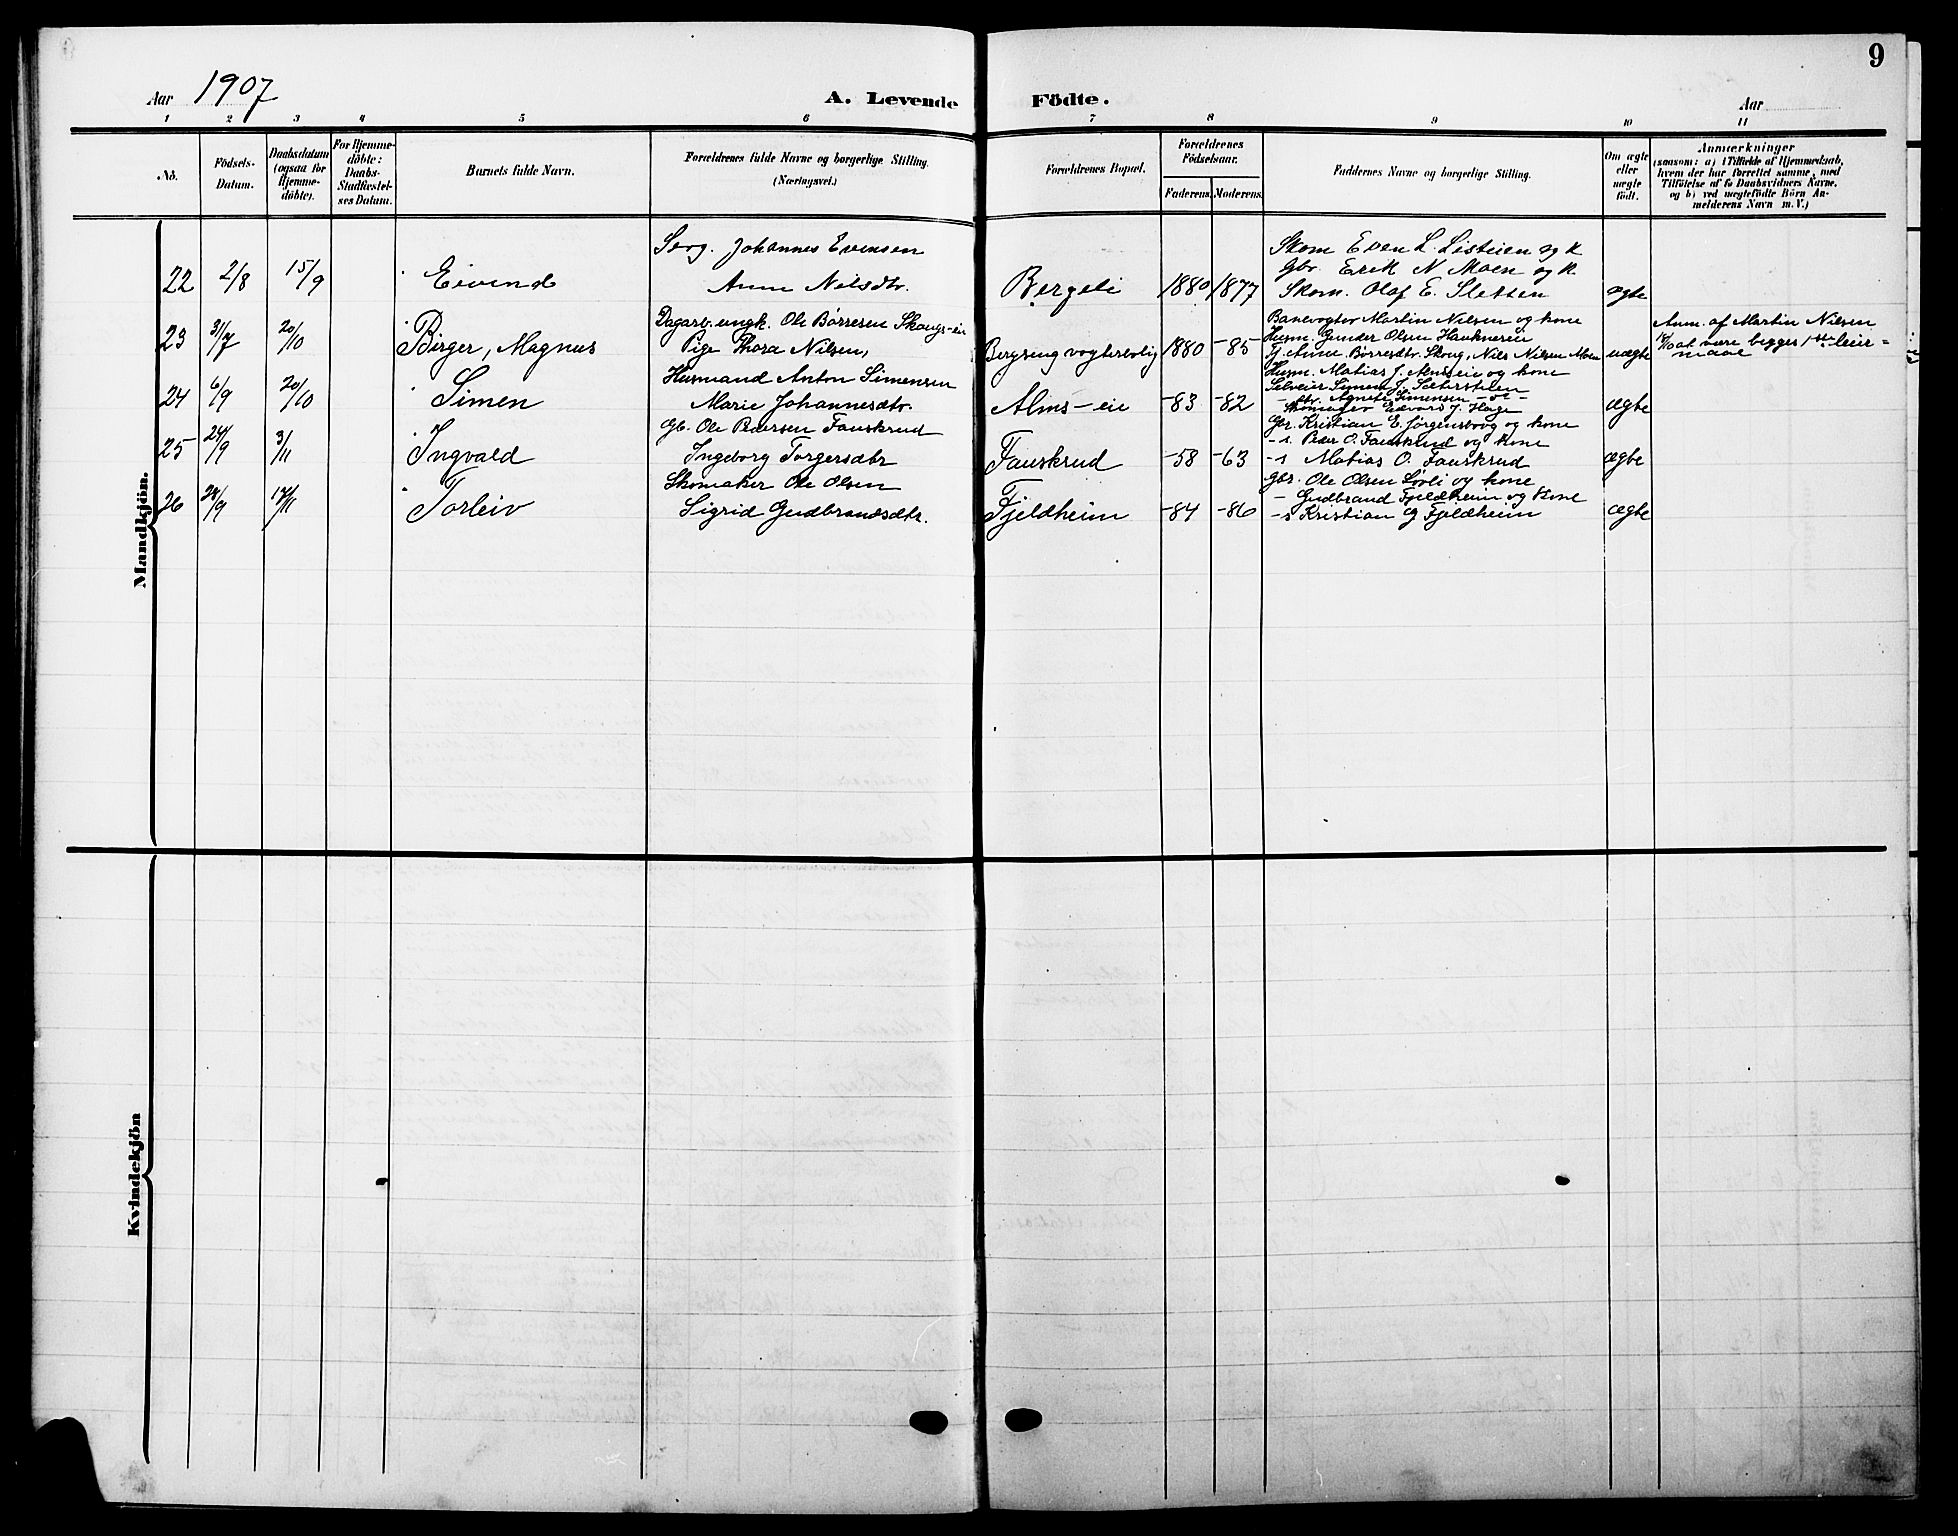 9
Aar 1907
A. Levende Födte.
Aar
1 2 3 4 5 6 7 8 9 10 11
No.
Födsels-
Datum.
Daabsdatum
(ogsaa for
Hjemme-
döbte).
For Hjemme-
döbte:
Daabs-
Stadfæstel-
ses Datum.
Barnets fulde Navn.
Forældrenes fulde Navne og borgerlige Stilling.
(Næringsvei.)
Forældrenes Bopæl.
Forældrenes
Födselsaar.
Faderens. Moderens.
Faddernes Navne og borgerlige Stilling.
Om ægte
eller
uægte
födt.
Anmærkninger
(saasom: a) i Tilfælde af Hjemmedaab,
hvem der har forrettet samme, med
Tilföielse af to Daabsvidners Navne,
og b) ved uægtefödte Börn An-
melderens Navn m. V.)
Mandkjön.
22 2/8 15/9 Eivind
Johannes Evensen
Anne Nilsdtr.
Bergeli 1880 1877
Skom Even L. Listuen og k
Gbr. Erik N Moen og k
Skom. Olaf E. Sletten
ægte
23 31/7 20/10 Birger, Magnus
Dagarb. ungk. Ole Børresen Skougs-eie
Pige Thora Nilsen,
Bergseng vogterbolig 1880 -85
Banevogter Martin Nilsen og kone
Husm. Gunder Olsen Haukneseie
Pj. Anne Børresdtr. Skoug, Nils Nilsen Moen
uægte
Anm. af Martin Nilsen
at være begges 1ste leier-
maal
24 6/9 20/10 Simen
Husmand Anton Simensen
Marie Johannesdtr.
Alms-eie -83 -82
Husm. Matias J. Almseie og kone
Selveier Simen J. Sæterstuen
- dtr. Agnete Simensen -"-
Skomager Edvard J. Hage
ægte
25 24/9 3/11 Ingvald
Gb. Ole Pedersen Fauskrud
Ingeborg Torgersdtr
Fauskrud -58 -63
Gbr. Kristian E. Jørgensboog og kone
-s. Peder O. Fauskrud og kone
-s Matias O. Fauskrud
ægte
26 28/9 17/11 Torleiv
Skomaker Ole Olsen
Sigrid Gudbrandsdtr.
Fjeldheim -84 -86
Gbr. Ole Olsen Løvli og kone
- Gudbrand Fjeldheim og kone
-s Kristian G Fjeldheim
ægte
Kvindekjön